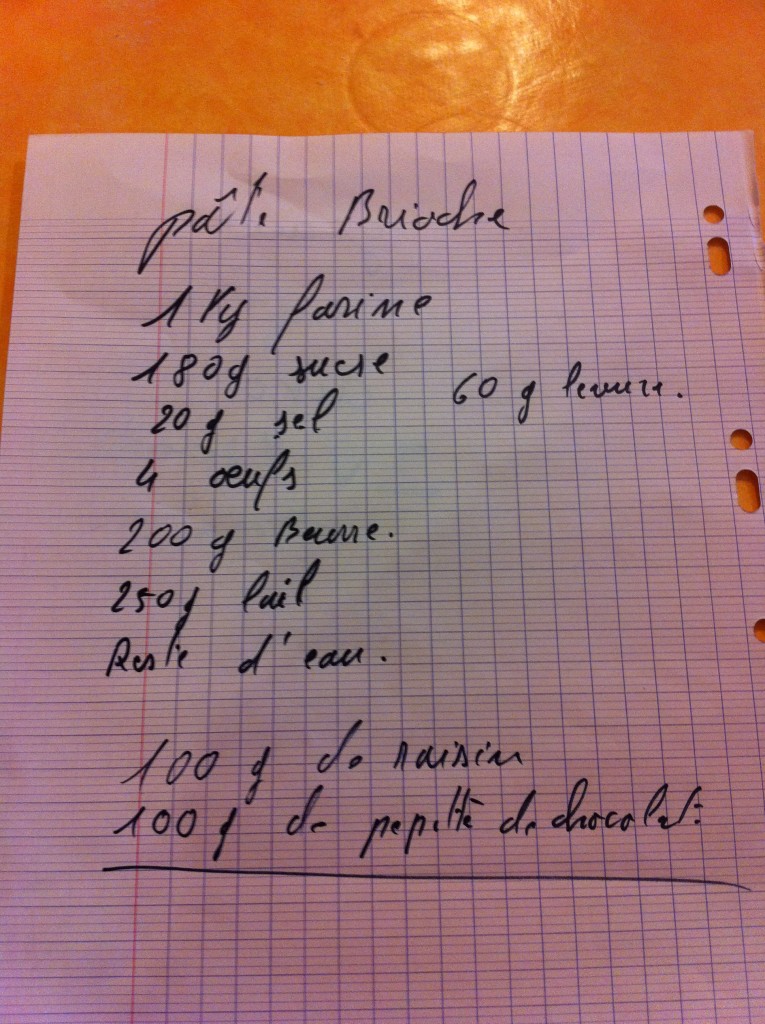 pâte Brioche
1 Kg farine
180g sucre
60 g levure.
20 g sel
4 oeufs
200 g Beurre.
250g lait
Reste d'eau.
100 g de raisin
100 g de pepitte de chocolat